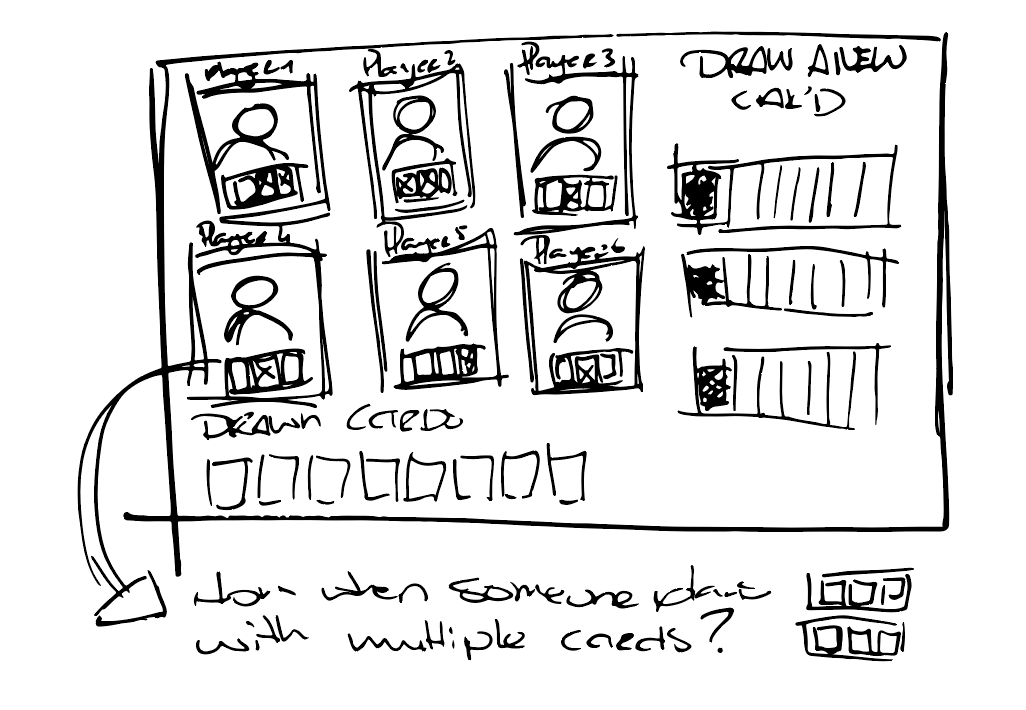 Player 1 Player 2 Player 3
DRAW A NEW
CARD
Player 4 Player 5 Player 6
DRAWN CARDS
How when someone plays
with multiple cards?